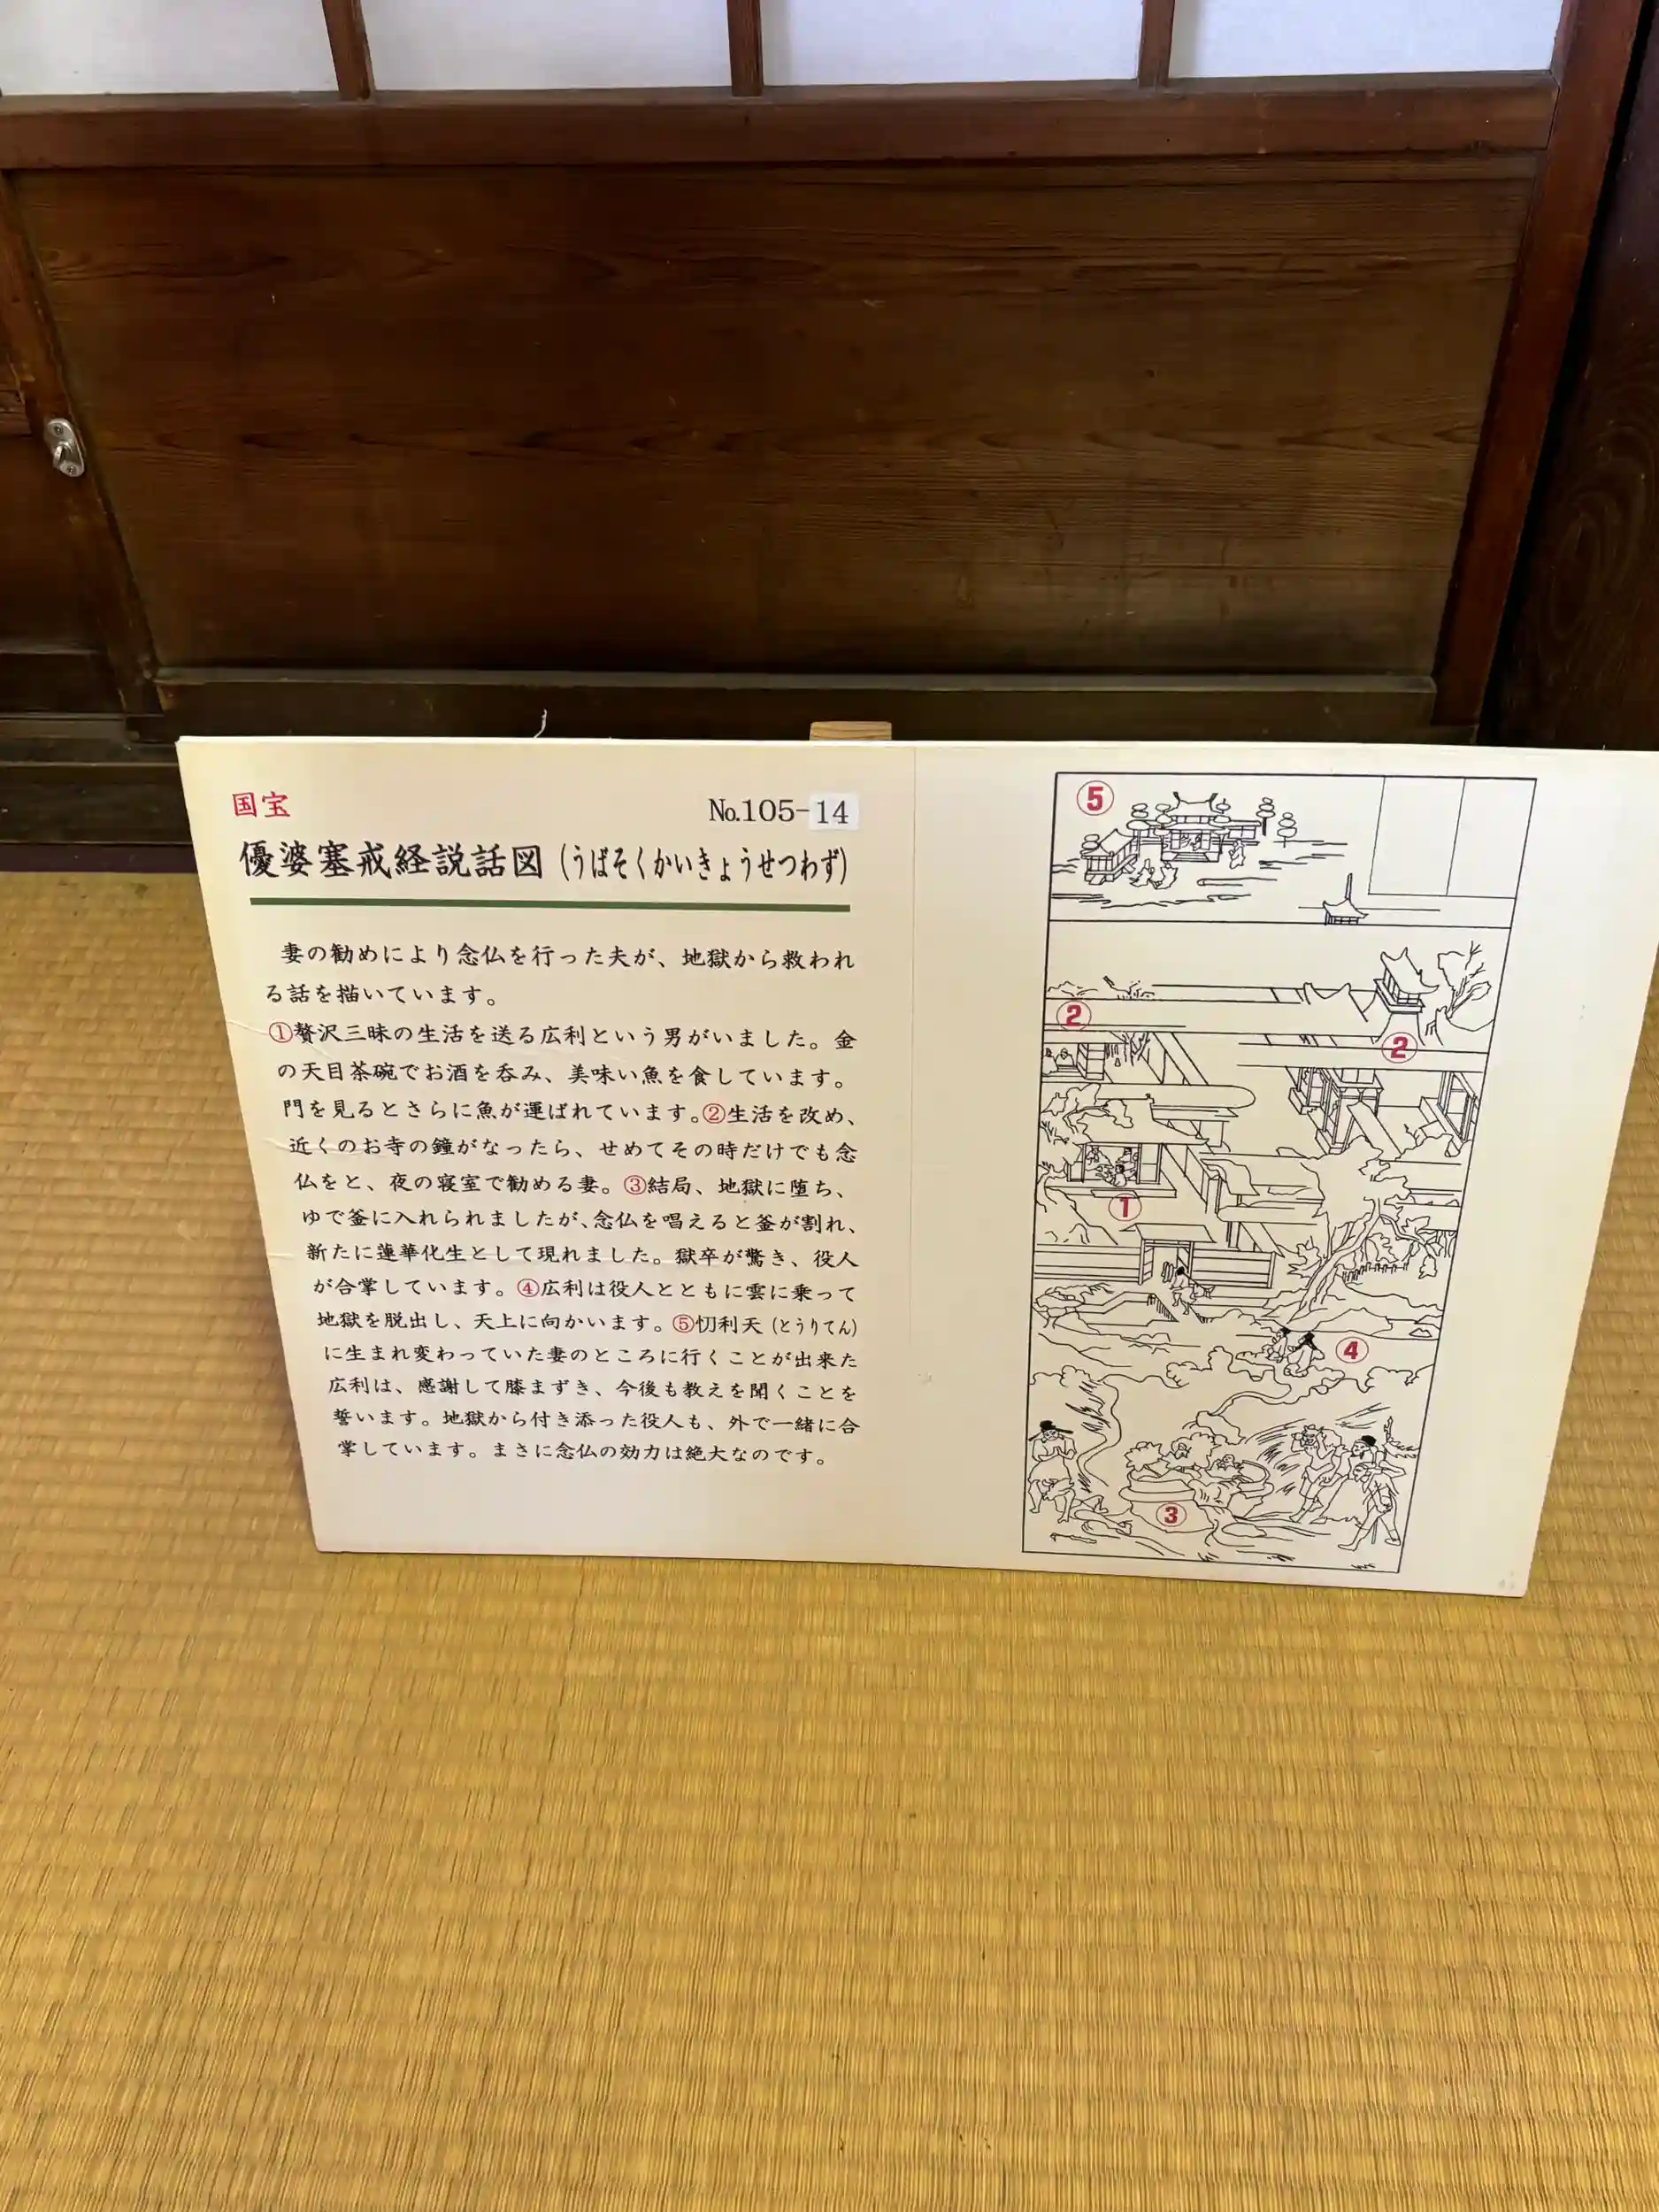 国宝
No.105-14
優婆塞戒経説話図(うばそくかいきょうせつわず)
妻の勧めにより念仏を行った夫が、地獄から救われ
る話を描いています。
①贅沢三昧の生活を送る広利という男がいました。金
の天目茶碗でお酒を呑み、美味い魚を食しています。
門を見るとさらに魚が運ばれています。②生活を改め、
近くのお寺の鐘がなったら、せめてその時だけでも念
仏をと、夜の寝室で勧める妻。③結局、地獄に堕ち、
ゆで釜に入れられましたが、念仏を唱えると釜が割れ、
新たに蓮華化生として現れました。獄卒が驚き、役人
が合掌しています。④広利は役人とともに雲に乗って
地獄を脱出し、天上に向かいます。⑤忉利天(とうりてん)
に生まれ変わっていた妻のところに行くことが出来た
広利は、感謝して膝まずき、今後も教えを聞くことを
誓います。地獄から付き添った役人も、外で一緒に合
掌しています。まさに念仏の効力は絶大なのです。
⑤
②
②
①
④
③